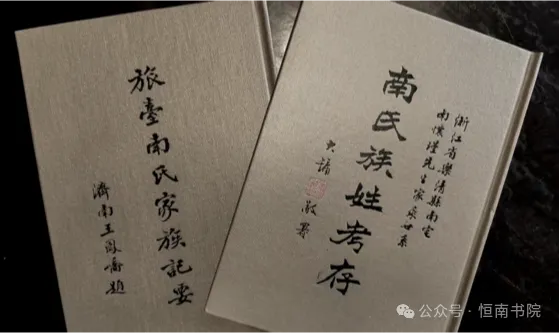 旅臺南氏家族記要
濟南王鳳嶠題
浙江省樂清縣南宅
南懷瑾先生家族世系
南氏族姓考存
敬署
公众号·恒南书院